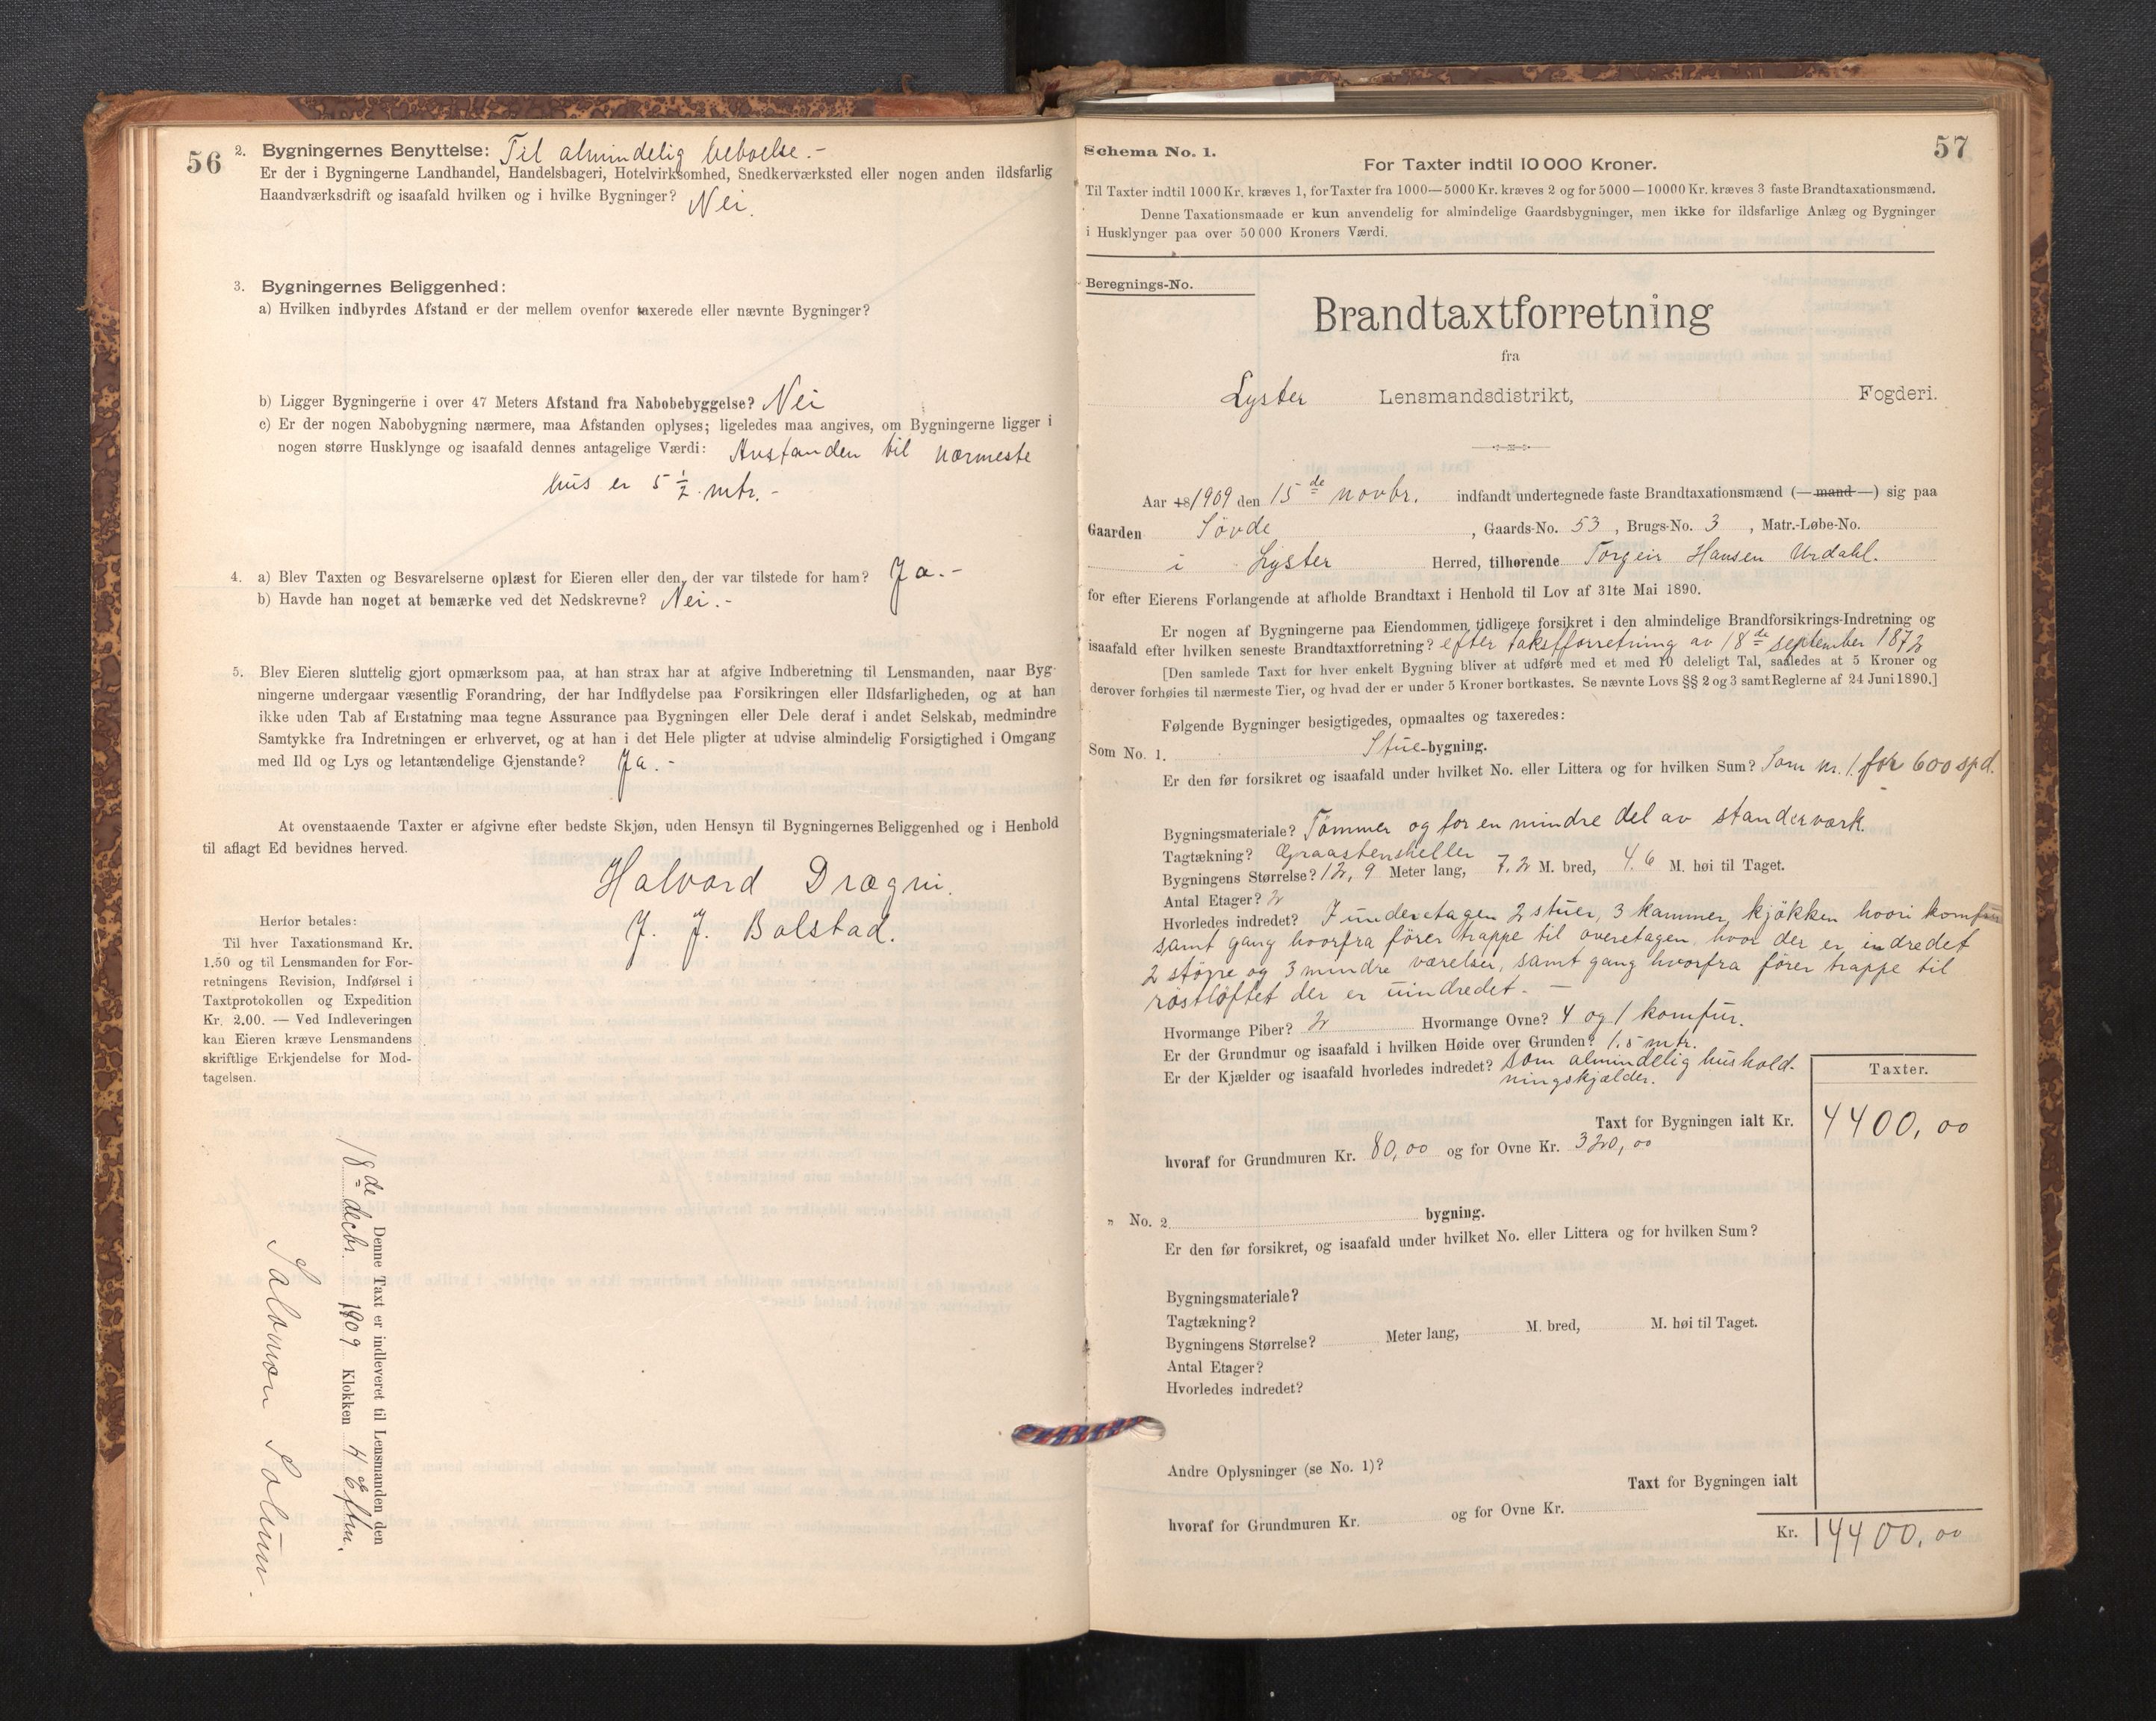 56
2. Bygningernes Benyttelse: Til almindelig beboelse.-
Er der i Bygningerne Landhandel, Handelsbageri, Hotelvirksomhed, Snedkerværksted eller nogen anden ildsfarlig
Haandværksdrift og isaafald hvilken og i hvilke Bygninger? Nei.
3. Bygningernes Beliggenhed:
a) Hvilken indbyrdes Afstand er der mellem ovenfor taxerede eller nævnte Bygninger?
b) Ligger Bygningerne i over 47 Meters Afstand fra Nabobebyggelse? Nei
c) Er der nogen Nabobygning nærmere, maa Afstanden oplyses; ligeledes maa angives, om Bygningerne ligger i
nogen større Husklynge og isaafald dennes antagelige Værdi: Avstanden til nærmeste
hus er 5 1/2 mtr.-
4. a) Blev Taxten og Besvarelserne oplæst for Eieren eller den, der var tilstede for ham? Ja.-
b) Havde han noget at bemærke ved det Nedskrevne? Nei.-
5. Blev Eieren sluttelig gjort opmærksom paa, at han strax har at afgive Indberetning til Lensmanden, naar Byg-
ningerne undergaar væsentlig Forandring, der har Indflydelse paa Forsikringen eller Ildsfarligheden, og at han
ikke uden Tab af Erstatning maa tegne Assurance paa Bygningen eller Dele deraf i andet Selskab, medmindre
Samtykke fra Indretningen er erhvervet, og at han i det Hele pligter at udvise almindelig Forsigtighed i Omgang
med Ild og Lys og letantændelige Gjenstande? Ja.-
At ovenstaaende Taxter er afgivne efter bedste Skjøn, uden Hensyn til Bygningernes Beliggenhed og i Henhold
til aflagt Ed bevidnes herved.
Halvard Drægni.
J. J. Bolstad.
Herfor betales:
Til hver Taxationsmand Kr.
1.50 og til Lensmanden for For-
retningens Revision, Indførsel i
Taxtprotokollen og Expedition
Kr. 2.00. — Ved Indleveringen
kan Eieren kræve Lensmandens
skriftlige Erkjendelse for Mod-
tagelsen.
Denne Taxt er indleveret til Lensmanden den
18de decbr. 1909 Klokken 4 eftm.
Salomon Solum.
57
Schema No. 1.
For Taxter indtil 10 000 Kroner.
Til Taxter indtil 1000 Kr. kræves 1, for Taxter fra 1000—5000 Kr. kræves 2 og for 5000—10000 Kr. kræves 3 faste Brandtaxationsmænd.
Denne Taxationsmaade er kun anvendelig for almindelige Gaardsbygninger, men ikke for ildsfarlige Anlæg og Bygninger
i Husklynger paa over 50 000 Kroners Værdi.
Beregnings-No.
Brandtaxtforretning
fra
Lyster Lensmandsdistrikt, Fogderi.
Aar 18 1909 den 15de novbr. indfandt undertegnede faste Brandtaxationsmænd (—mand—) sig paa
Gaarden Sövde, Gaards-No. 53, Brugs-No. 3, Matr.-Løbe-No.
i Lyster Herred, tilhørende Torgeir Hansen Urdahl.
for efter Eierens Forlangende at afholde Brandtaxt i Henhold til Lov af 31te Mai 1890.
Er nogen af Bygningerne paa Eiendommen tidligere forsikret i den almindelige Brandforsikrings-Indretning og
isaafald efter hvilken seneste Brandtaxtforretning? efter takstforretning av 18de september 1872
[Den samlede Taxt for hver enkelt Bygning bliver at udføre med et med 10 deleligt Tal, saaledes at 5 Kroner og
derover forhøies til nærmeste Tier, og hvad der er under 5 Kroner bortkastes. Se nævnte Lovs §§ 2 og 3 samt Reglerne af 24 Juni 1890.]
Følgende Bygninger besigtigedes, opmaaltes og taxeredes:
Som No. 1. Stue-bygning.
Er den før forsikret og isaafald under hvilket No. eller Littera og for hvilken Sum? Som nr. 1. for 600 spd.
Bygningsmateriale? Tömmer og for en mindre del av standerværk.
Tagtækning? Graastensheller
Bygningens Størrelse? 12,9 Meter lang, 7,2 M. bred, 4.6 M. høi til Taget.
Antal Etager? 2
Hvorledes indredet? I underetagen 2 stuer, 3 kammer, kjökken hvori komfur
samt gang hvorfra förer trappe til overetagen, hvor der er indredet
2 större og 3 mindre værelser, samt gang hvorfra förer trappe til
röstlöftet der er uindredet. —
Hvormange Piber? 2 Hvormange Ovne? 4 og 1 komfur.
Er der Grundmur og isaafald i hvilken Høide over Grunden? 1.5 mtr.
Er der Kjælder og isaafald hvorledes indredet? Som almindelig hushold-
ningskjælder.
Taxter.
Taxt for Bygningen ialt Kr. 4400,00
hvoraf for Grundmuren Kr. 80,00 og for Ovne Kr. 320,00
„ No. 2 bygning.
Er den før forsikret, og isaafald under hvilket No. eller Littera og for hvilken Sum?
Bygningsmateriale?
Tagtækning?
Bygningens Størrelse? Meter lang, M. bred, M. høi til Taget.
Antal Etager?
Hvorledes indredet?
Andre Oplysninger (se No. 1)?
Taxt for Bygningen ialt
hvoraf for Grundmuren Kr. og for Ovne Kr.
Kr. 4400,00